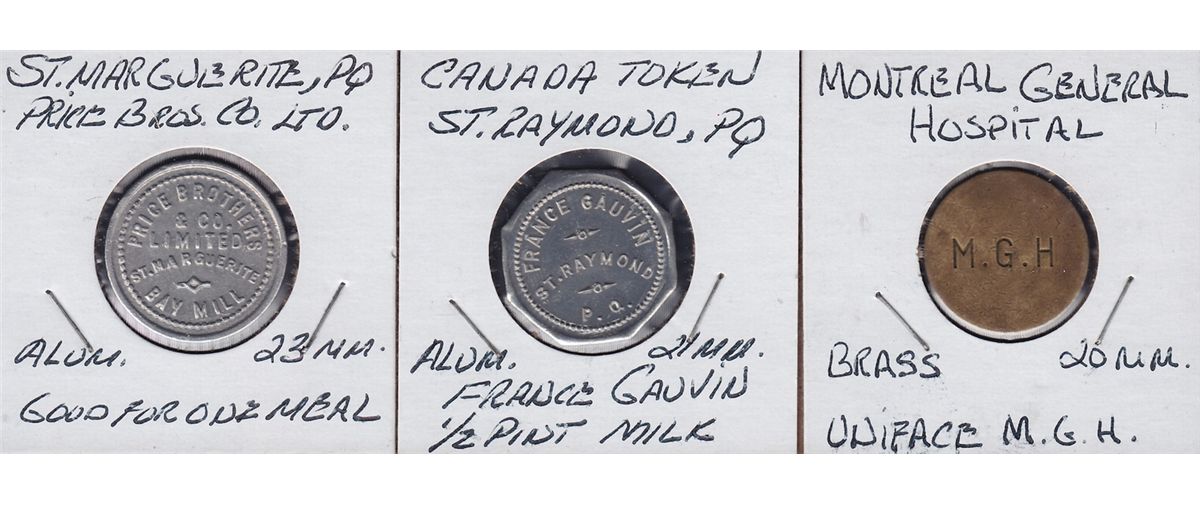 ST. MARGUERITE, PQ
PRICE BROS. CO. LTD.
PRICE BROTHERS
& CO.
LIMITED
ST. MARGUERITE
BAY MILL
ALUM. 23 MM.
GOOD FOR ONE MEAL
CANADA TOKEN
ST. RAYMOND, PQ
FRANCE GAUVIN
ST. RAYMOND
P.Q.
ALUM. 21 MM.
FRANCE GAUVIN
1/2 PINT MILK
MONTREAL GENERAL
HOSPITAL
M.G.H
BRASS 20 MM.
UNIFACE M.G.H.